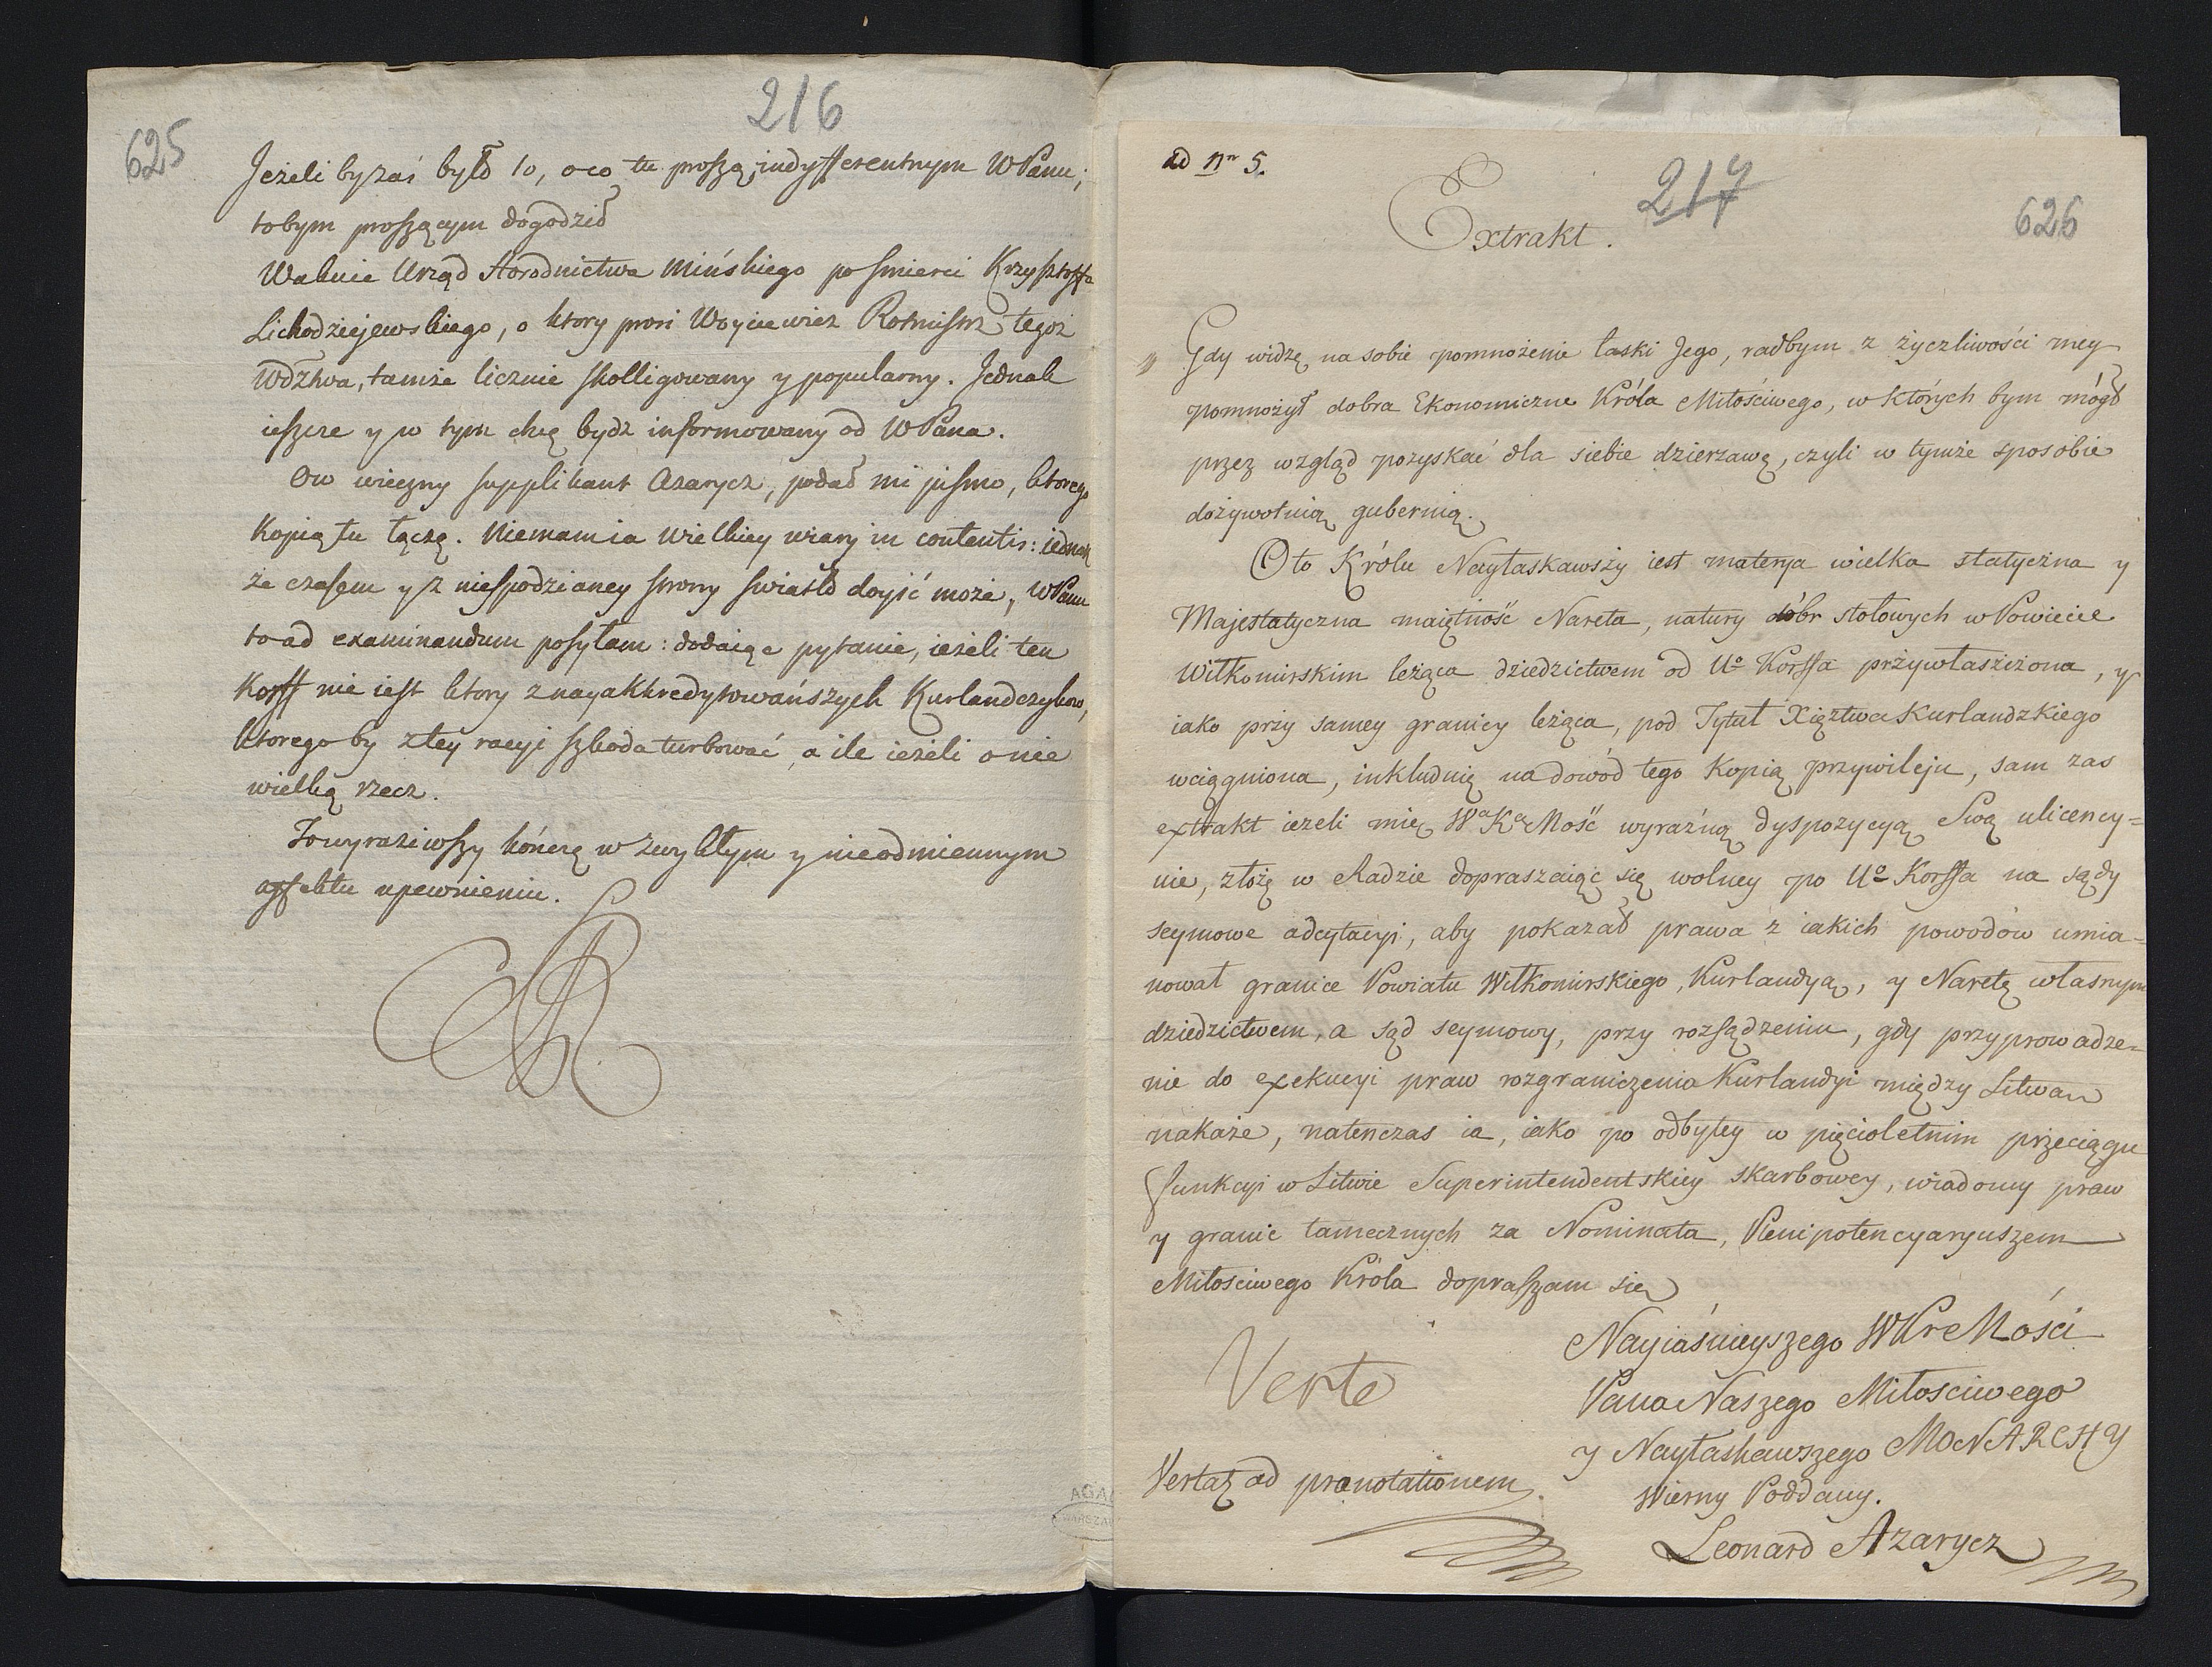 625
216
Jeżeli by zaś było to, o co tu proszą, indyfferentnym WPanu;
tobym proszącym dogodził
Wakuie Urząd Horodnictwa Mińskiego po smierci Krzysztoffa
Lichodziejewskiego, o ktory prosi Woyniewicz Rotmistrz tegoż
Wdztwa, tamże licznie skolligowany y popularny. Jednak
ieszcze y w tym chcę bydz informowany od WPana.
Ow wieczny supplikant Azarycz, podał mi pismo, ktorego
kopią tu łączę. Niemam ia wielkiey wiary in contentis: iednak
że czasem y z niespodzianey strony swiatło doyść może, WPanu
to ad examinandum posyłam: dodaiąc pytanie, ieżeli ten
Korff nie iest ktory z nayakkredytowańszych Kurlandczykow,
ktorego by z tey racyi szkoda turbować, a ile ieżeli o nie
wielką rzecz.
To wyraziwszy kończę w zwykłym y nieodmiennym
affektu upewnieniu.
SAR
ad Nr 5.
217
626
Extrakt.
„ Gdy widzę na sobie pomnożenie łaski Jego, radbym z życzliwości mey
pomnożył dobra Ekonomiczne Króla Miłościwego, w których bym mógł
przez wzgląd pozyskać dla siebie dzierzawę, czyli w tymże sposobie
dożywotnią gubernią.
Oto Królu Nayłaskawszy iest materya wielka statyczna y
Majestatyczna maiętność Nareta, natury dóbr stołowych w Powiecie
Wiłkomirskim leżąca dziedzictwem od Uo Korffa przywłaszczona, y
iako przy samey granicy leżąca, pod Tytuł Xięztwa Kurlandzkiego
wciągniona, inkluduię na dowód tego kopią przywileju, sam zas
extrakt ieżeli mię Wa Ka Mość wyraźną dyspozycyą Swą ulicency=
nie, złożę w Radzie dopraszaiąc się wolney po Uo Korffa na sądy
seymowe adcytacyi, aby pokazał prawa z iakich powodów umia=
nował granice Powiatu Wiłkomirskiego, Kurlandyą, y Naretę własnym
dziedzictwem, a sąd seymowy, przy rozsądzeniu, gdy przyprowadze=
nie do exekucyi praw rozgraniczenia Kurlandyi między Litwą
nakaże, natenczas ia, iako po odbytey w pięcioletnim przeciągu
funkcyi w Litwie Superintendentskiey skarbowey, wiadomy praw
y granic tamecznych za Nominata, Plenipotencyaryuszem
Miłosciwego Króla dopraszam się
Nayiaśnieyszego WKr Mości
Pana Naszego Miłosciwego
y Nayłaskawszego MONARCHY
Wierny Poddany.
Leonard Azarycz
Verte
Vertaz ad pranotationem
AGAD
WARSZAWA